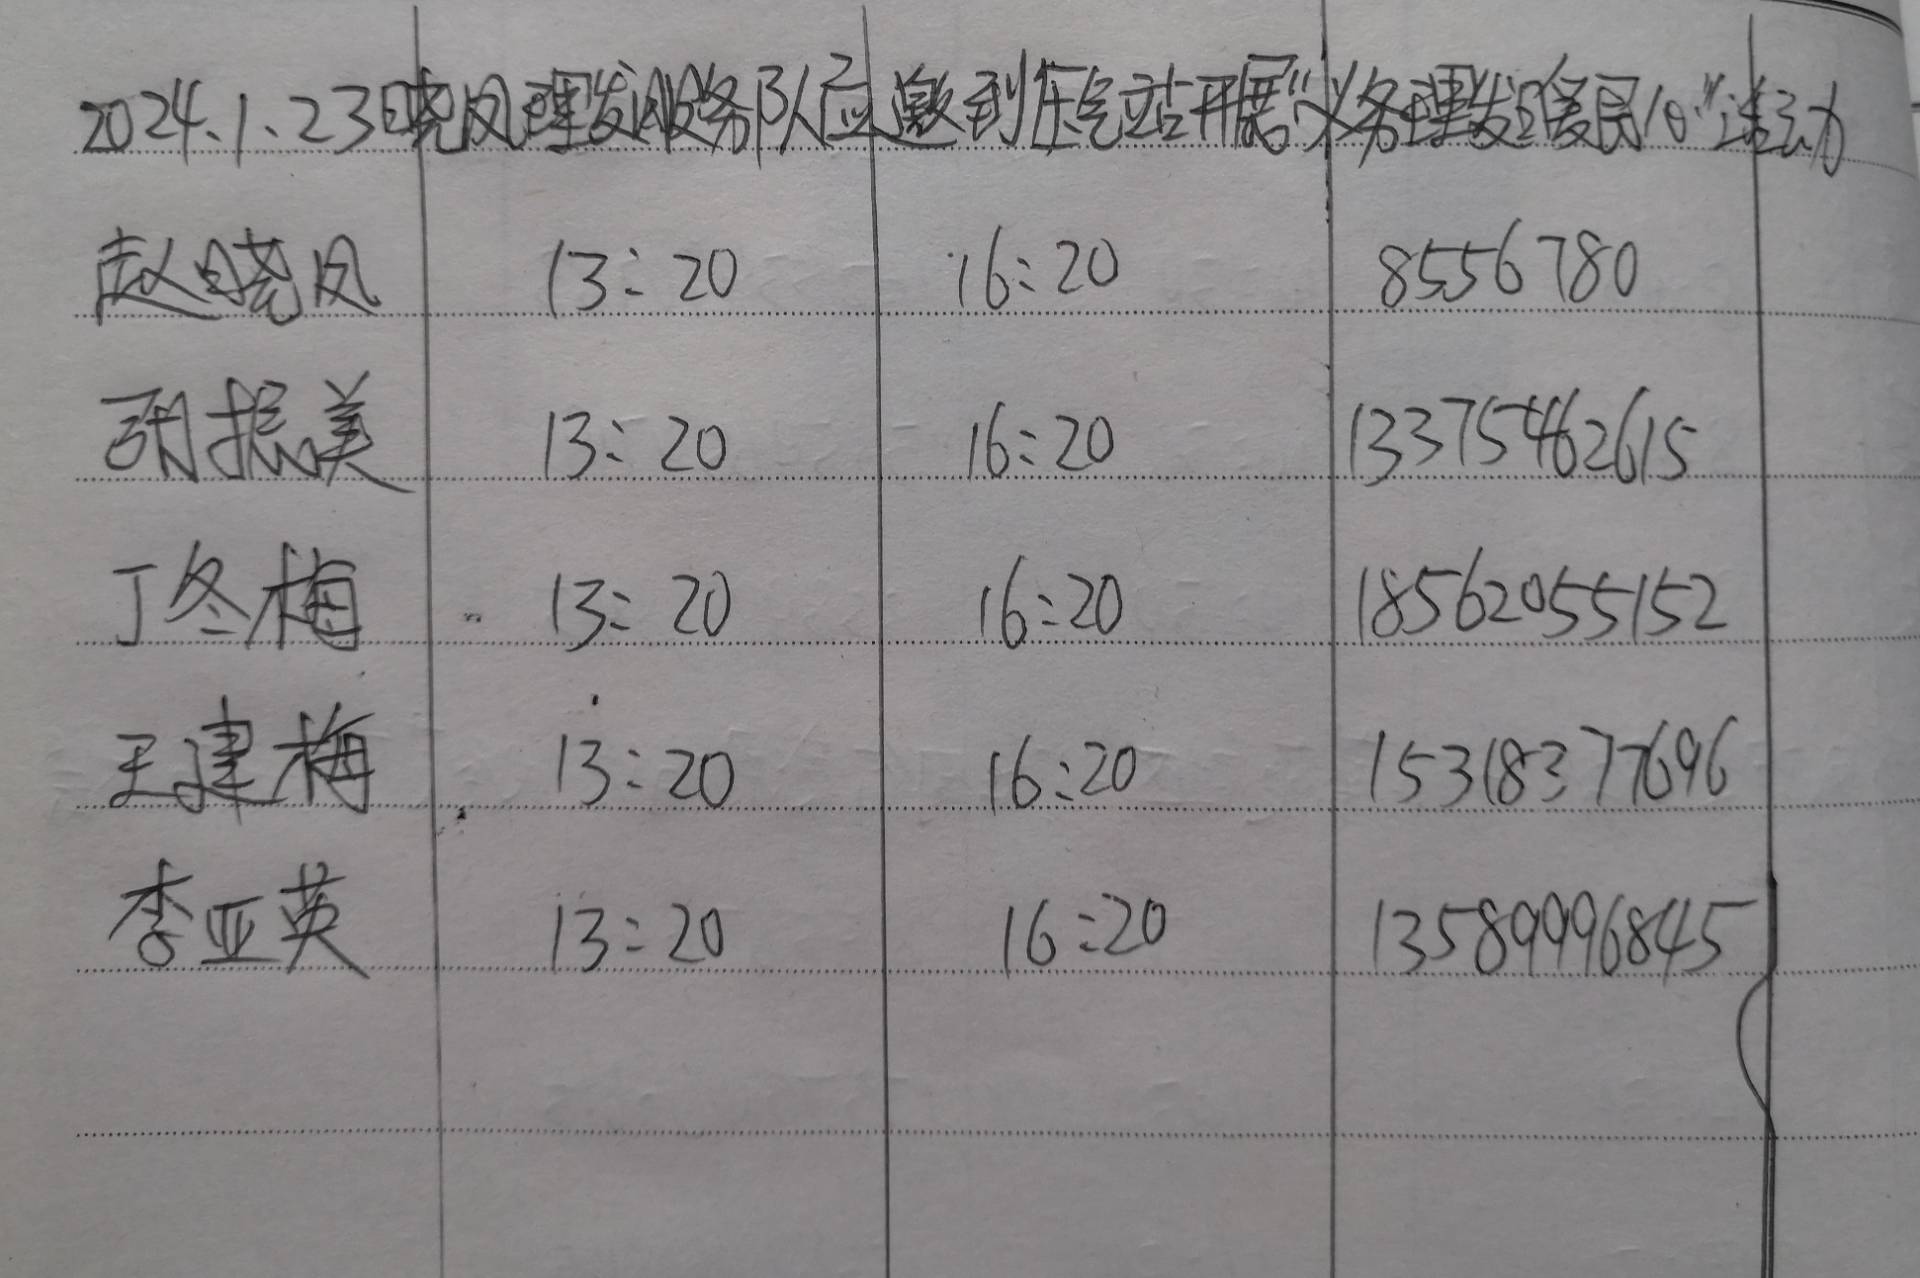 2024.1.23晓凤理发服务队应邀到压气站开展"义务理发暖民心"活动
赵晓凤 13:20 16:20 8556780
胡振美 13:20 16:20 13375462615
丁冬梅 13:20 16:20 18562055152
王建梅 13:20 16:20 15318377696
李亚英 13:20 16:20 13589996845